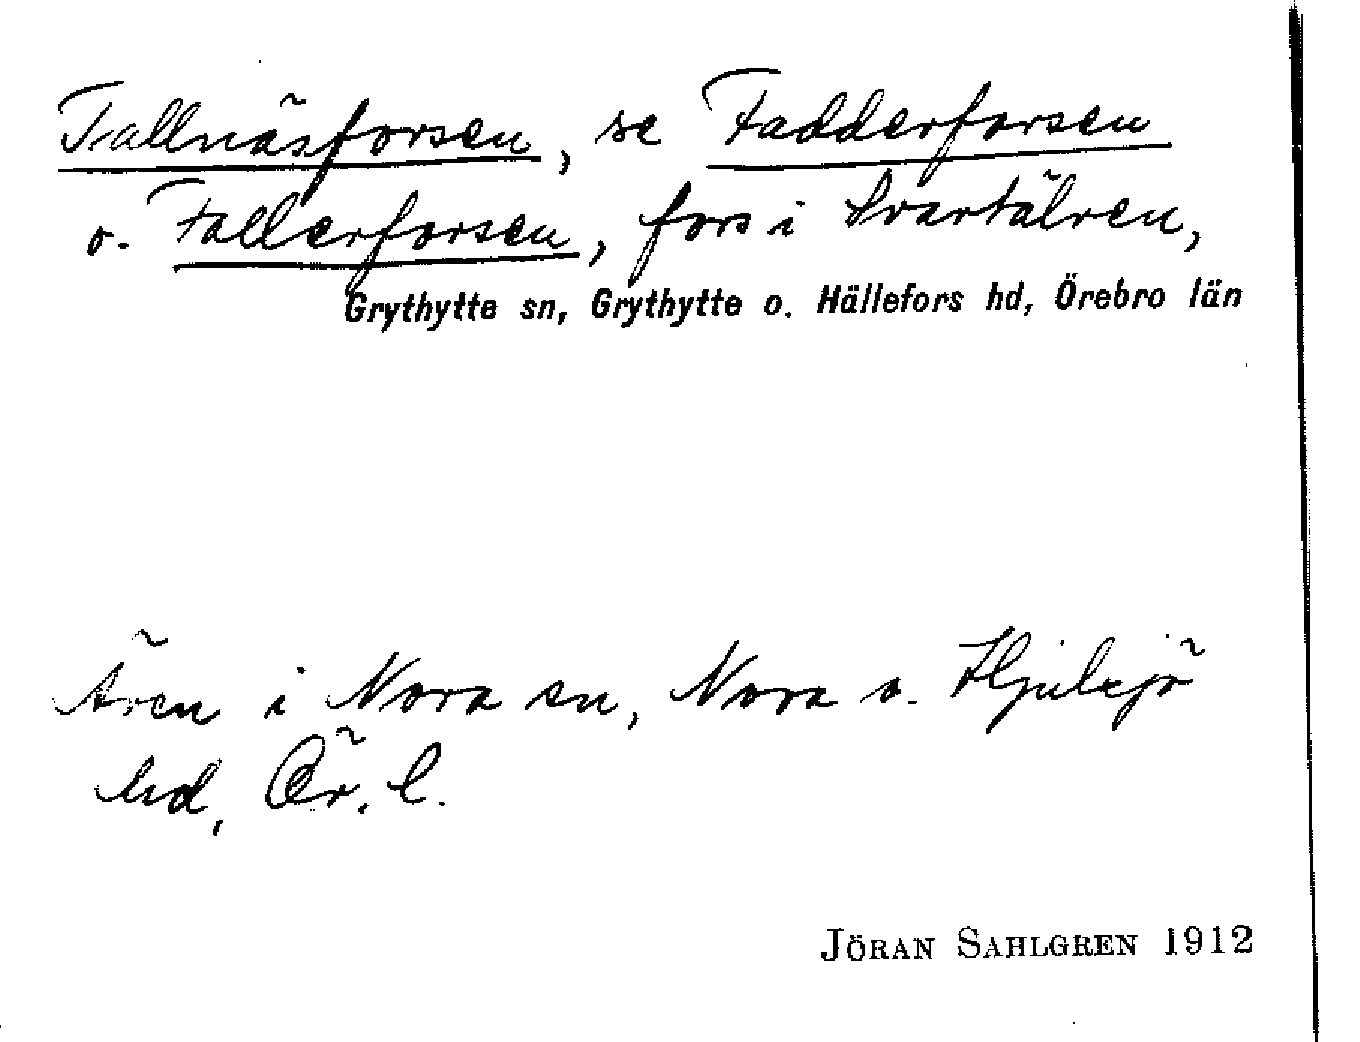 Tallnäsforsen, se Fadderforsen
o. Fallerforsen, fors i Svartälven,
Grythytte sn, Grythytte o. Hällefors hd, Örebro län
Även i Nora sn, Nora o. Hjulsjö
hd, Ör. l.
JÖRAN SAHLGREN 1912